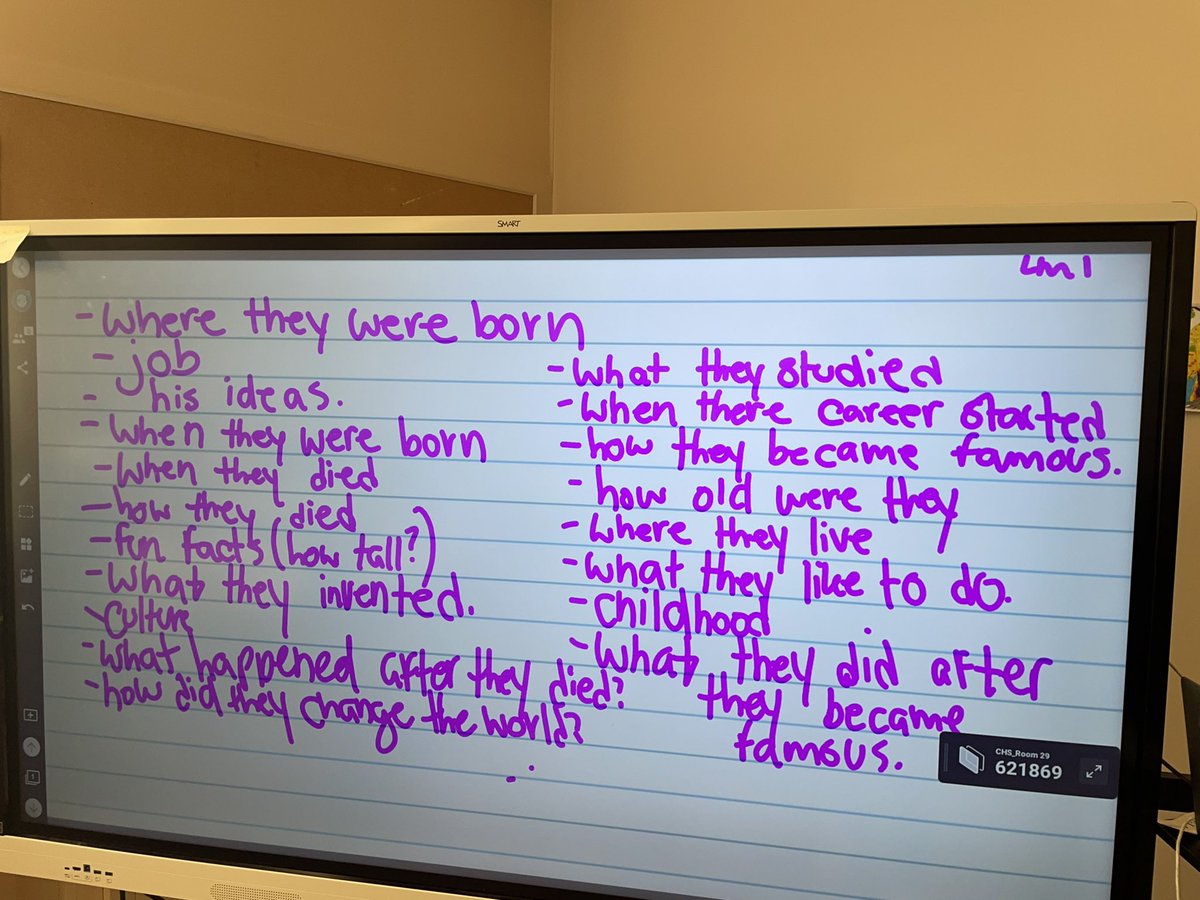 SMART
Lm1
- where they were born
- job
- his ideas.
- when they were born
- when they died
- how they died
- fun facts (how tall?)
- what they invented.
- culture
- what happened after they died?
- how did they change the world?
- what they studied
- when there career started
- how they became famous.
- how old were they
- where they live
- what they like to do.
- childhood
- what they did after
they became
famous.
CHS_Room 29
621869